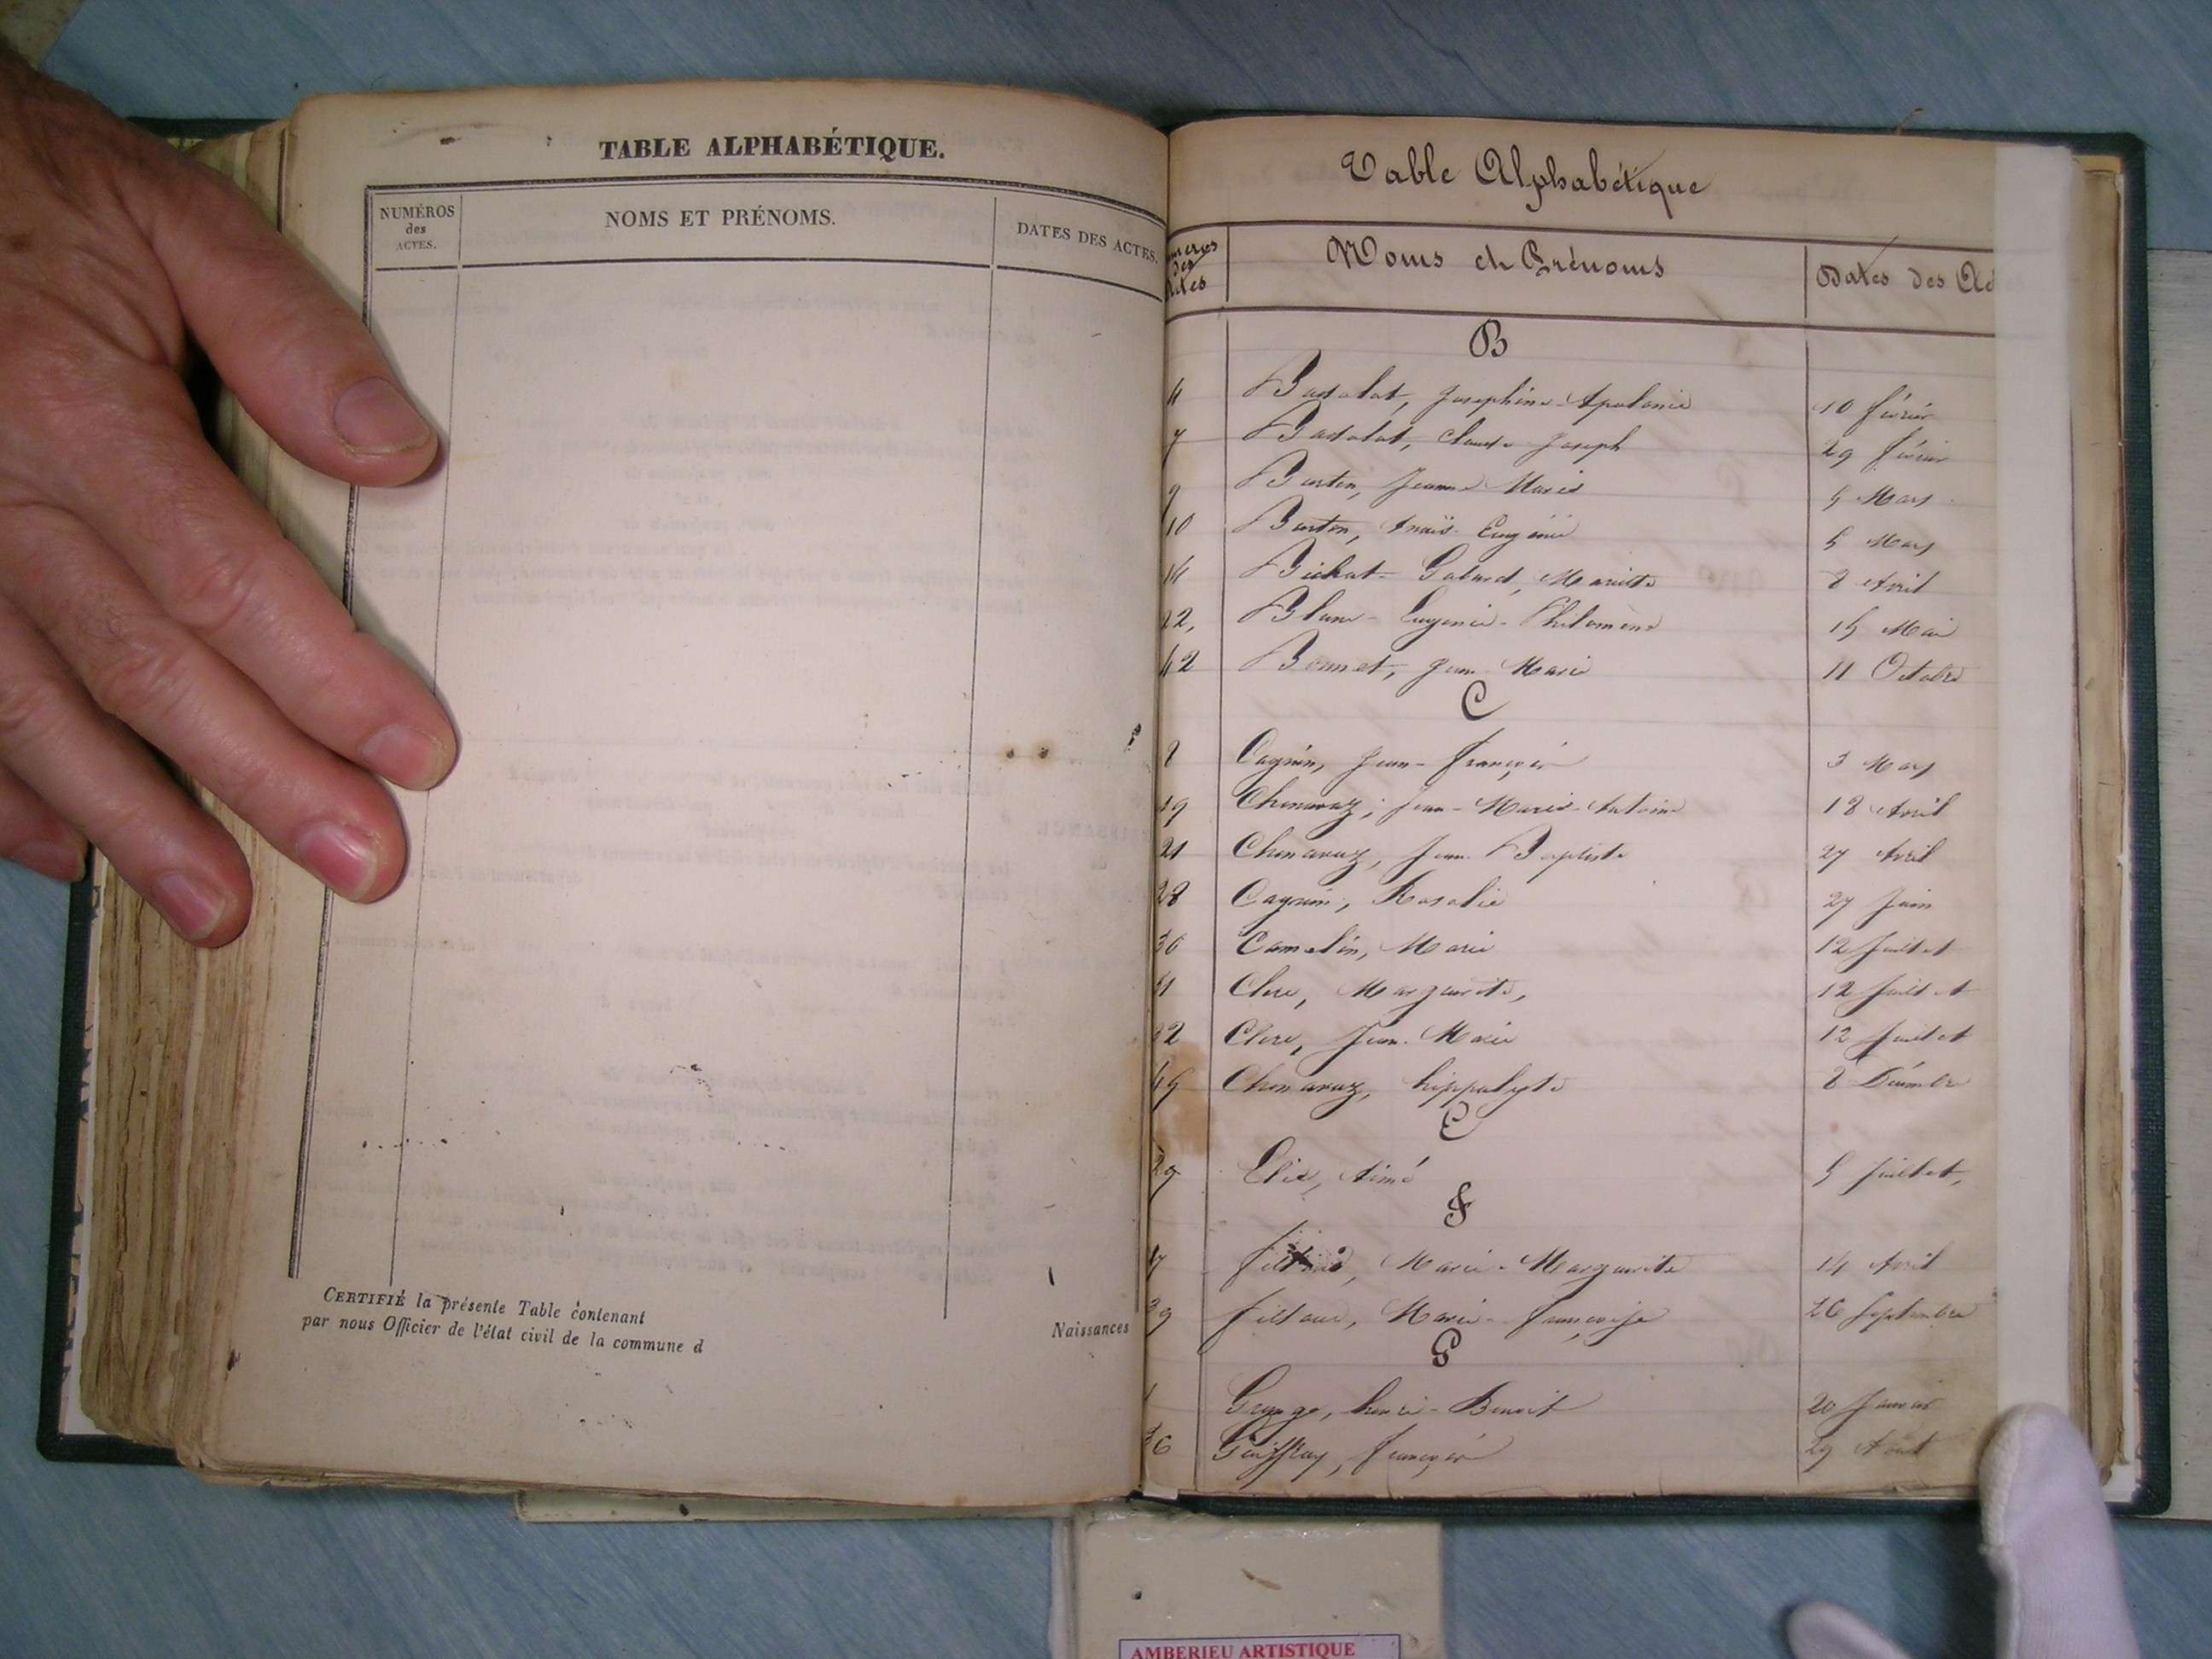 TABLE ALPHABÉTIQUE.
NUMÉROS
des
ACTES.
NOMS ET PRÉNOMS.
DATES DES ACTES.
CERTIFIÉ la présente Table contenant
Naissances
par nous Officier de l'état civil de la commune d
Table Alphabétique
des
Noms et Prénoms
Dates des
B
Joséphine Apolonie 10
7 Claude Joseph 29
9 Jeanne Marie 5 Mars
10 Anaïs Eugénie 5 Mars
14 Bichat 8 Avril
22, Blanc - Eugénie - Philomène 15 Mai
42 Bonnet, Jean Marie 11 Octobre
C
8 Cagnin, Jean - François 3 Mars
19 Chenavaz, Jean - Marie - Antoine 18 Avril
21 Chenavaz, Jean Baptiste 27 Avril
28 Cagnin, Rosalie 27 Juin
30 Camelin, Marie 12 Juillet
31 Clerc, Marguerite, 12 Juillet
32 Clerc, Jean Marie 12 Juillet
Chenavaz, hippolyte 8 Décembre
E
29 Elie, Aimé 5 Juillet,
F
Marie - Marguerite 14 Avril
39 Marie - Françoise 26 Septembre
G
1 henri - Benoit 20 Janvier
36 François 29 Août
AMBERIEU ARTISTIQUE